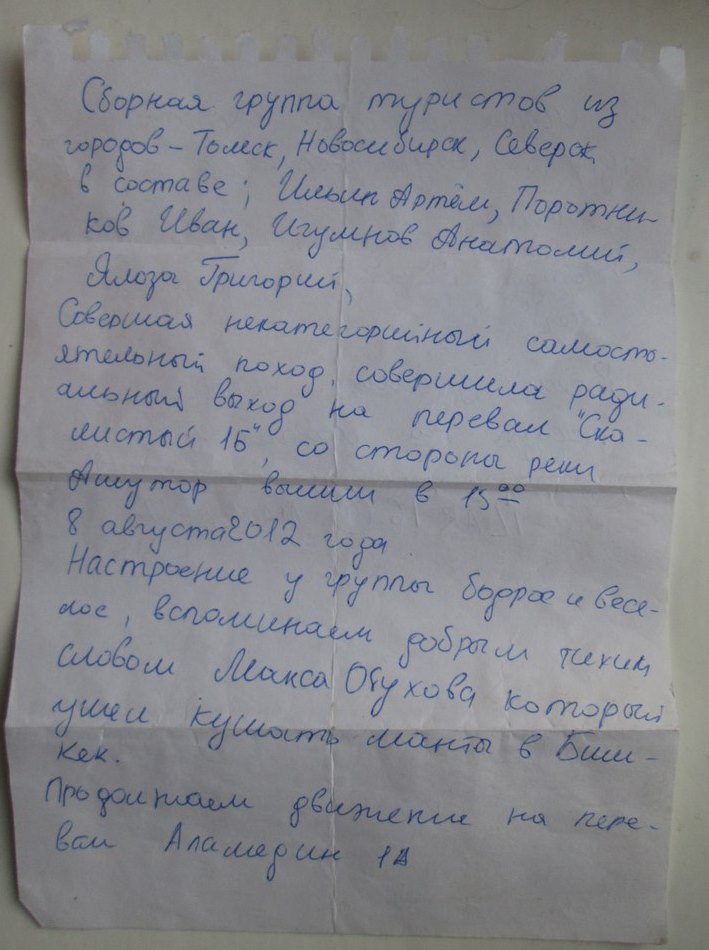 Сборная группа туристов из
городов – Томск, Новосибирск, Северск
в составе; Ильин Артём, Поротни-
ков Иван, Игумнов Анатолий,
Ялоза Григорий,
Совершая некатегорийный самосто-
ятельный поход, совершила ради-
альный выход на перевал "Ска-
листый 1Б", со стороны реки
Ашутор вышли в 15⁰⁰
8 августа 2012 года
Настроение у группы бодрое и весе-
лое, вспоминаем добрым тихим
словом Макса Обухова который
ушел кушать манты в Биш-
кек.
Продолжаем движение на пере-
вал Аламедин 1А